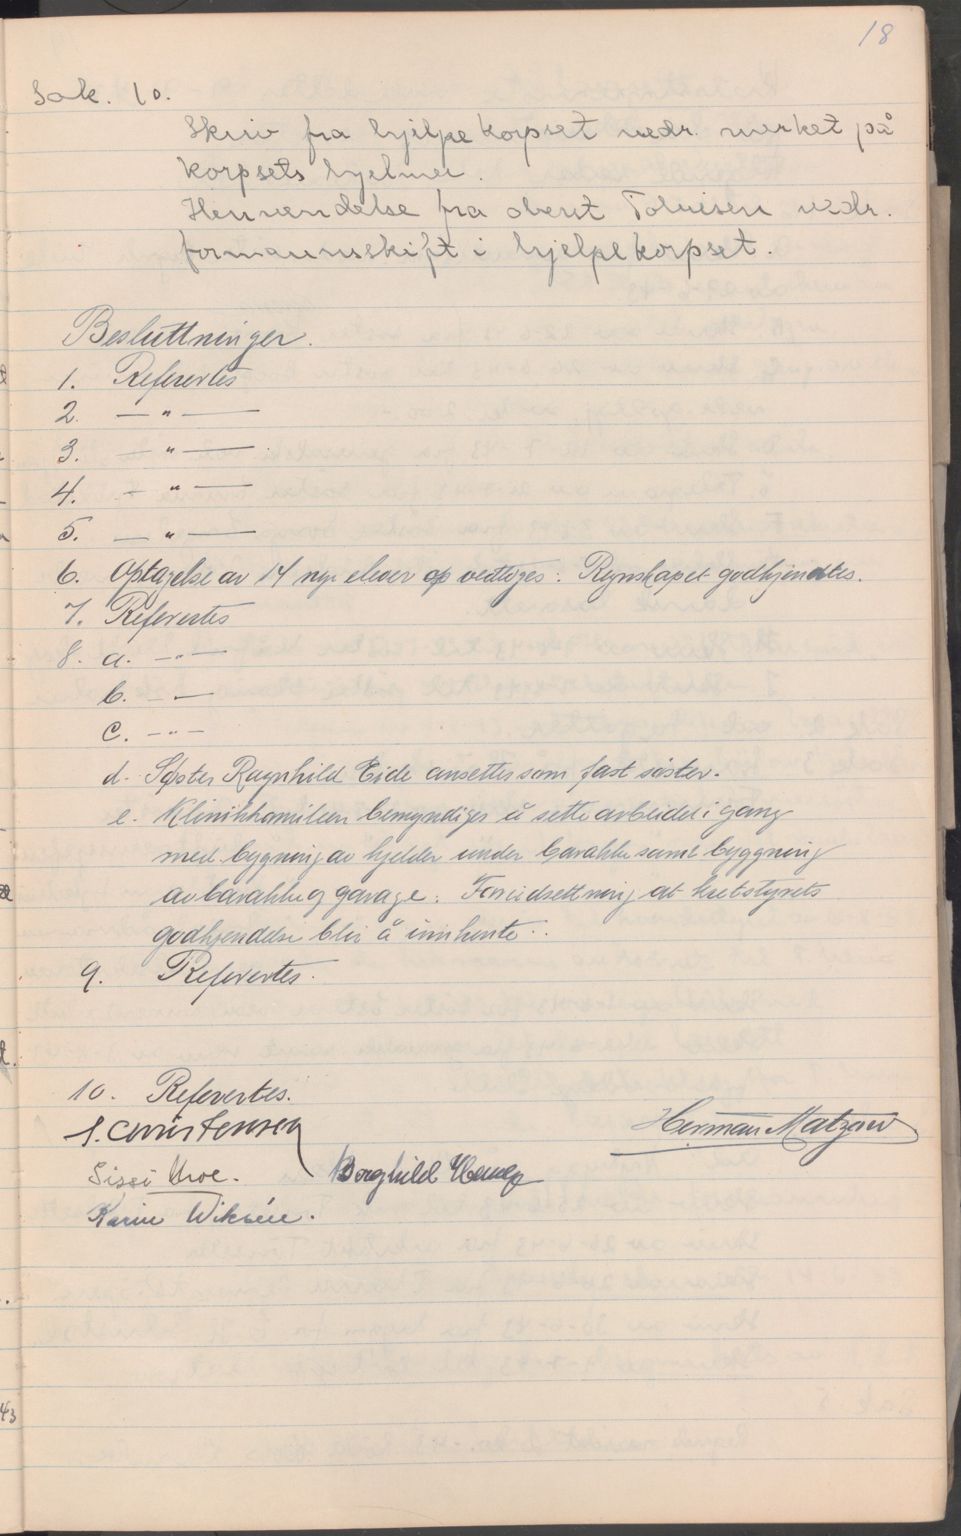 18
Sak. 10.
Skriv fra hjelpekorpset vedr. merket på
korpsets hjelmer.
Henvendelse fra oberst Tolnisen vedr.
formannsskift i hjelpekorpset.
Besluttninger.
1. Referertes
2. — " —
3. — " —
4. — " —
5. — " —
6. Optagelse av 14 nye elever op vedtoges. Regnskapet godkjendtes.
7. Referertes
8. a. — " —
b. — " —
c. — " —
d. Søster Ragnhild Eide ansettes som fast søster.
e. Klinikkomiteen bemyndiges å sette arbeidet i gang
med bygning av kjelder under barakke samt byggning
av barakke og garage. Forudsettning at kretsstyrets
godkjendelse blir å innhente.
9. Referertes.
10. Referertes.
S. Christensen
Herman Matzow
Sissi Kroe.
Borghild
Karin Wiksére.
43